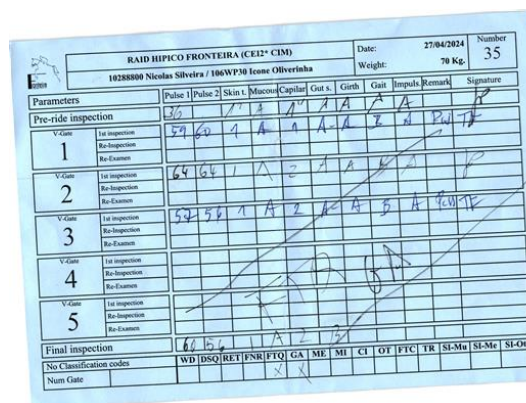 RAID HIPICO FRONTEIRA (CEI2* CIM) Date: 27/04/2024 Number
10288800 Nicolas Silveira / 106WP30 Icone Oliverinha Weight: 70 Kg. 35
Parameters Pulse 1 Pulse 2 Skin t. Mucous Capilar Gut s. Girth Gait Impuls. Remark Signature
Pre-ride inspection 36 1" A 1" A A A A
V-Gate 1st inspection 59 60 1 A 1 A- A B A
1 Re-Inspection
Re-Examen
V-Gate 1st inspection 64 64 1 A 2 A A A
2 Re-Inspection
Re-Examen
V-Gate 1st inspection 57 56 1 A 2 A- A B A
3 Re-Inspection
Re-Examen
V-Gate 1st inspection
4 Re-Inspection
Re-Examen
V-Gate 1st inspection
5 Re-Inspection
Re-Examen
Final inspection 60 56 1 A 2 B
No Classification codes WD DSQ RET FNR FTQ GA ME MI CI OT FTC TR SI-Mu SI-Me SI-Ot
Num Gate X X